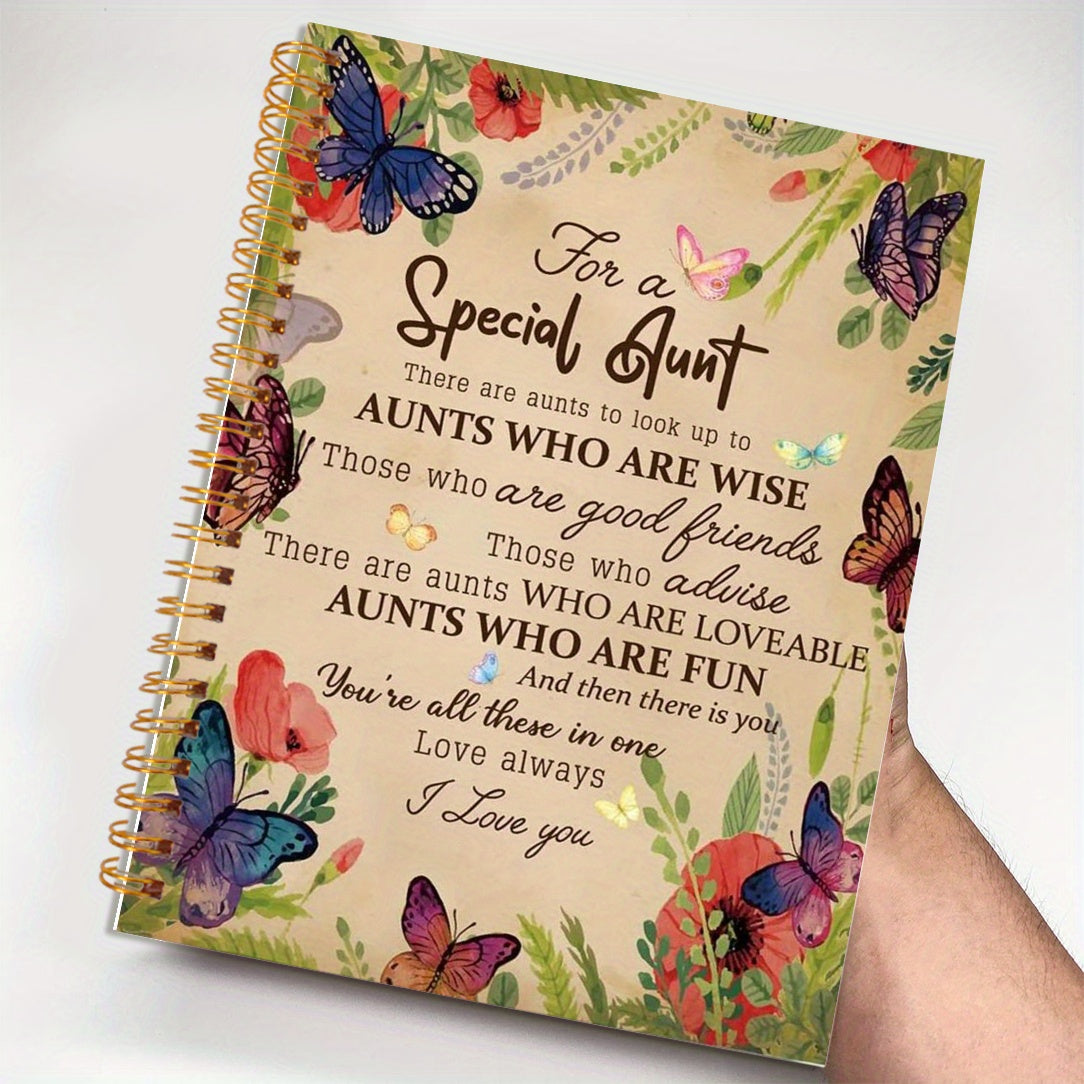 For a
Special Aunt
There are aunts to look up to
AUNTS WHO ARE WISE
Those who are good friends
Those who advise
There are aunts WHO ARE LOVEABLE
AUNTS WHO ARE FUN
And then there is you
You're all these in one
Love always
I Love you